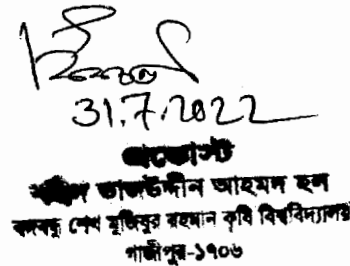 31.7.2022
প্রভোস্ট
শহীদ তাজউদ্দীন আহমদ হল
বঙ্গবন্ধু শেখ মুজিবুর রহমান কৃষি বিশ্ববিদ্যালয়
গাজীপুর-১৭০৬